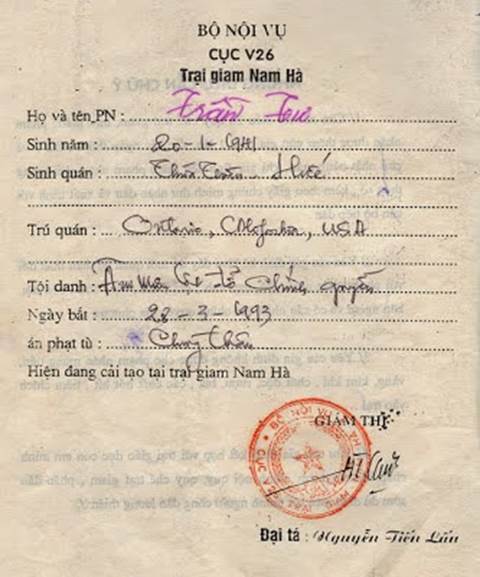 BỘ NỘI VỤ
CỤC V26
Trại giam Nam Hà
Họ và tên PN : Trần Tư
Sinh năm : 20-1-1941
Sinh quán : Thừa Thiên Huế
Trú quán : Ontario, California, USA
Tội danh : Âm mưu lật đổ chính quyền
Ngày bắt : 28-3-1993
án phạt tù : Chung thân
Hiện đang cải tạo tại trại giam Nam Hà
GIÁM THỊ
BỘ NỘI VỤ
Đại tá : Nguyễn Tiến Lấn